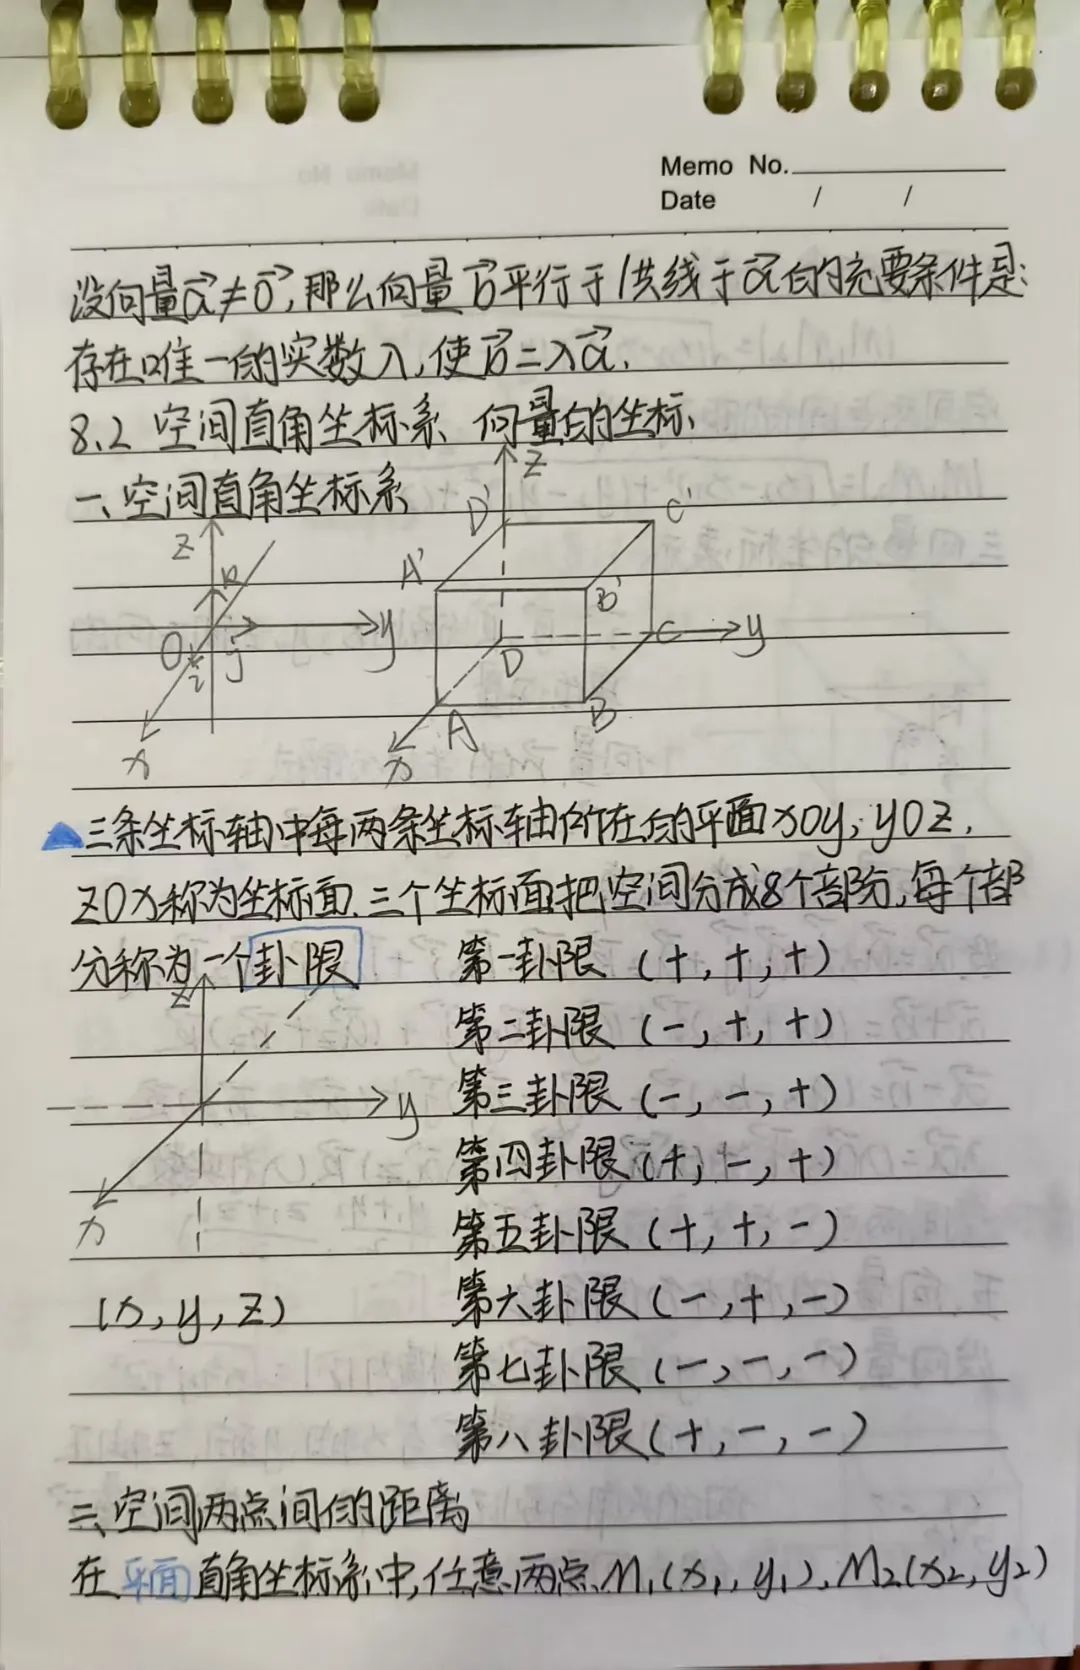 Memo No.
Date / /
设向量a⃗≠0⃗,那么向量b⃗平行于/共线于a⃗的充要条件是:
存在唯一的实数λ,使b⃗=λa⃗.
8.2 空间直角坐标系 向量的坐标
一、空间直角坐标系
z
k
O
i
j
y
x
z
D'
C'
A'
B'
D
C
y
A
B
x
三条坐标轴中每两条坐标轴所在的平面xOy,yOz,
zOx称为坐标面.三个坐标面把空间分成8个部分,每个部
分称为一个卦限
z
y
x
(x,y,z)
第一卦限(+,+,+)
第二卦限(-,+,+)
第三卦限(-,-,+)
第四卦限(+,-,+)
第五卦限(+,+,-)
第六卦限(-,+,-)
第七卦限(-,-,-)
第八卦限(+,-,-)
二、空间两点间的距离
在平面直角坐标系中,任意两点M₁(x₁,y₁),M₂(x₂,y₂)